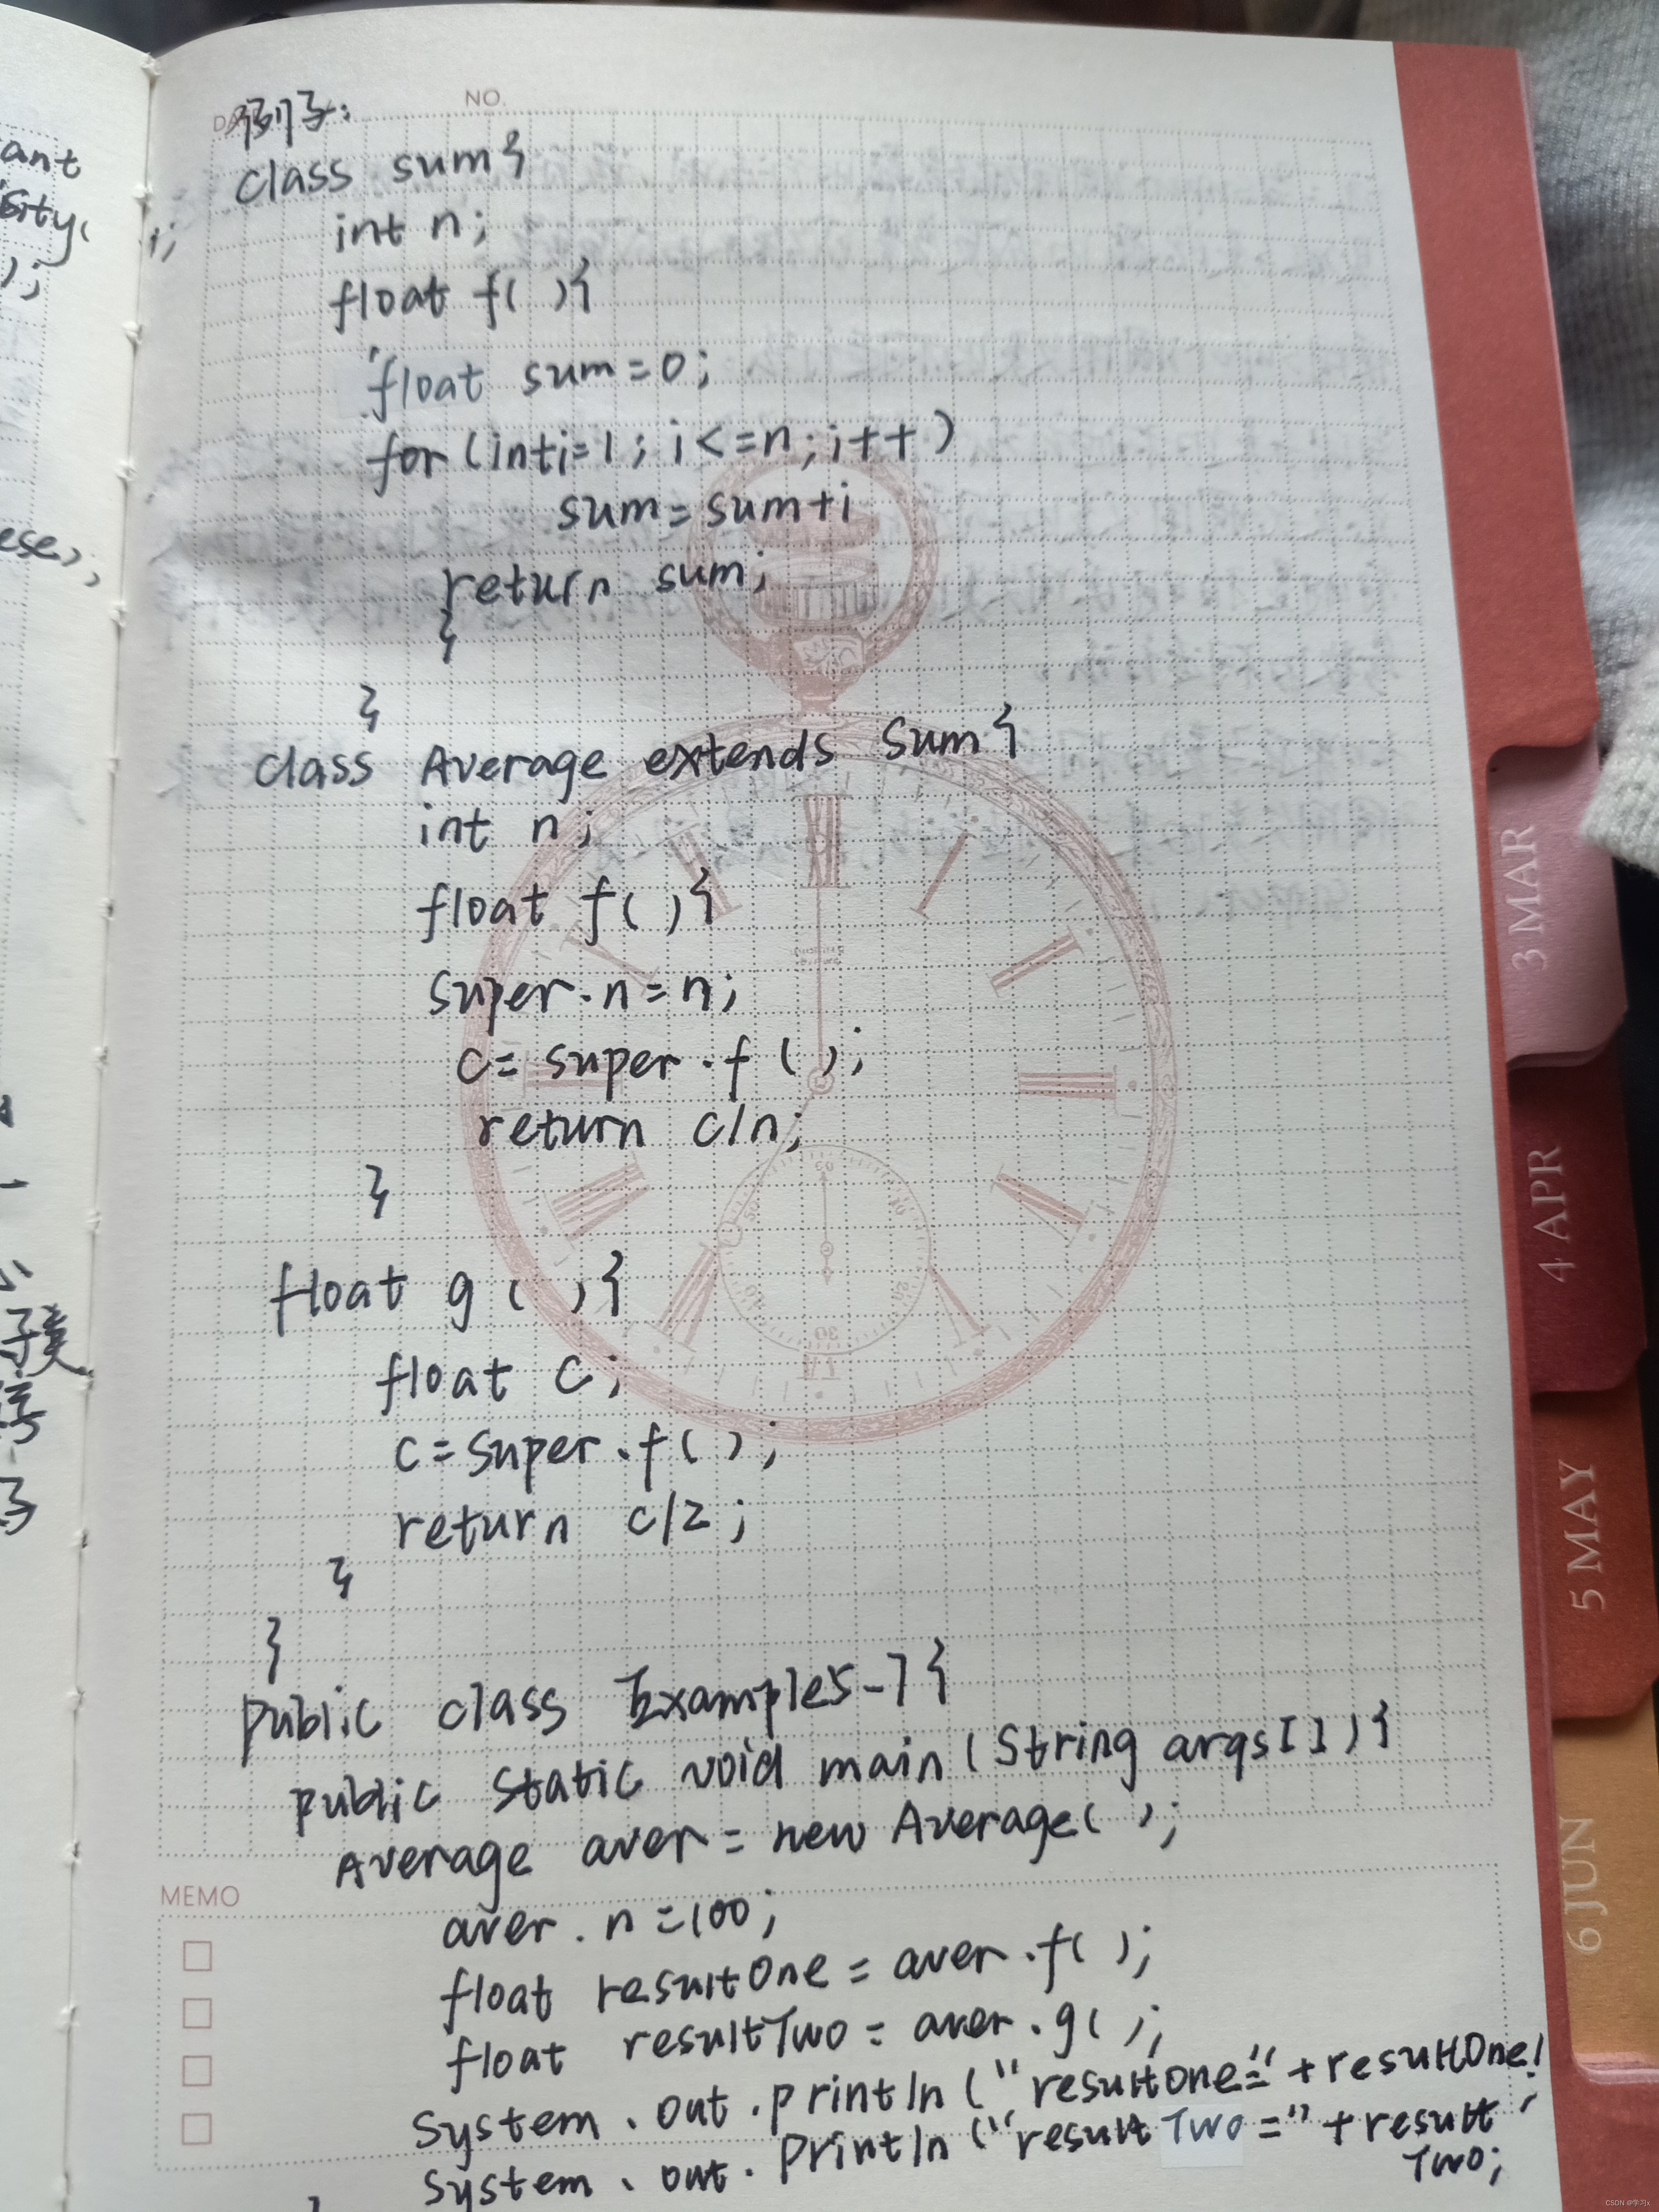 NO.
例子:
class sum{
int n;
float f( ){
float sum=0;
for(inti=1; i<=n; i++)
sum=sum+i
return sum;
}
}
class Average extends Sum{
int n;
float f( ){
super.n=n;
c= super.f( );
return c/n;
}
float g( ){
float c;
c=super.f( );
return c/2;
}
}
public class Example5-7{
public static void main(String args[]){
Average aver = new Average( );
MEMO
aver.n=100;
float resultOne = aver.f( );
float resultTwo = aver.g( );
System.out.println("resultOne="+resultOne);
System.out.println("resultTwo="+result
Two;
ant
);
3 MAR
4 APR
5 MAY
6 JUN
CSDN @学习x